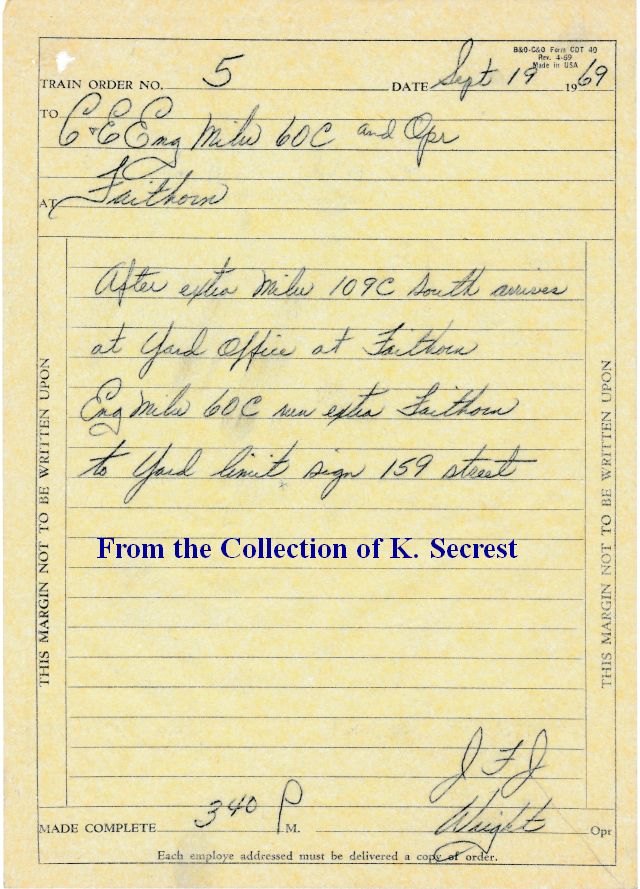 B&O-C&O Form CDT 40
Rev. 4-69
Made in USA
TRAIN ORDER NO. 5 DATE Sept 19 1969
TO C&E Eng Milw 60C and Opr
AT Faithorn
After extra Milw 109C South arrives
at Yard Office at Faithorn
Eng Milw 60C run extra Faithorn
to Yard limit sign 159 street
From the Collection of K. Secrest
THIS MARGIN NOT TO BE WRITTEN UPON
THIS MARGIN NOT TO BE WRITTEN UPON
JFJ
MADE COMPLETE 340 P M. Wright Opr
Each employe addressed must be delivered a copy of order.